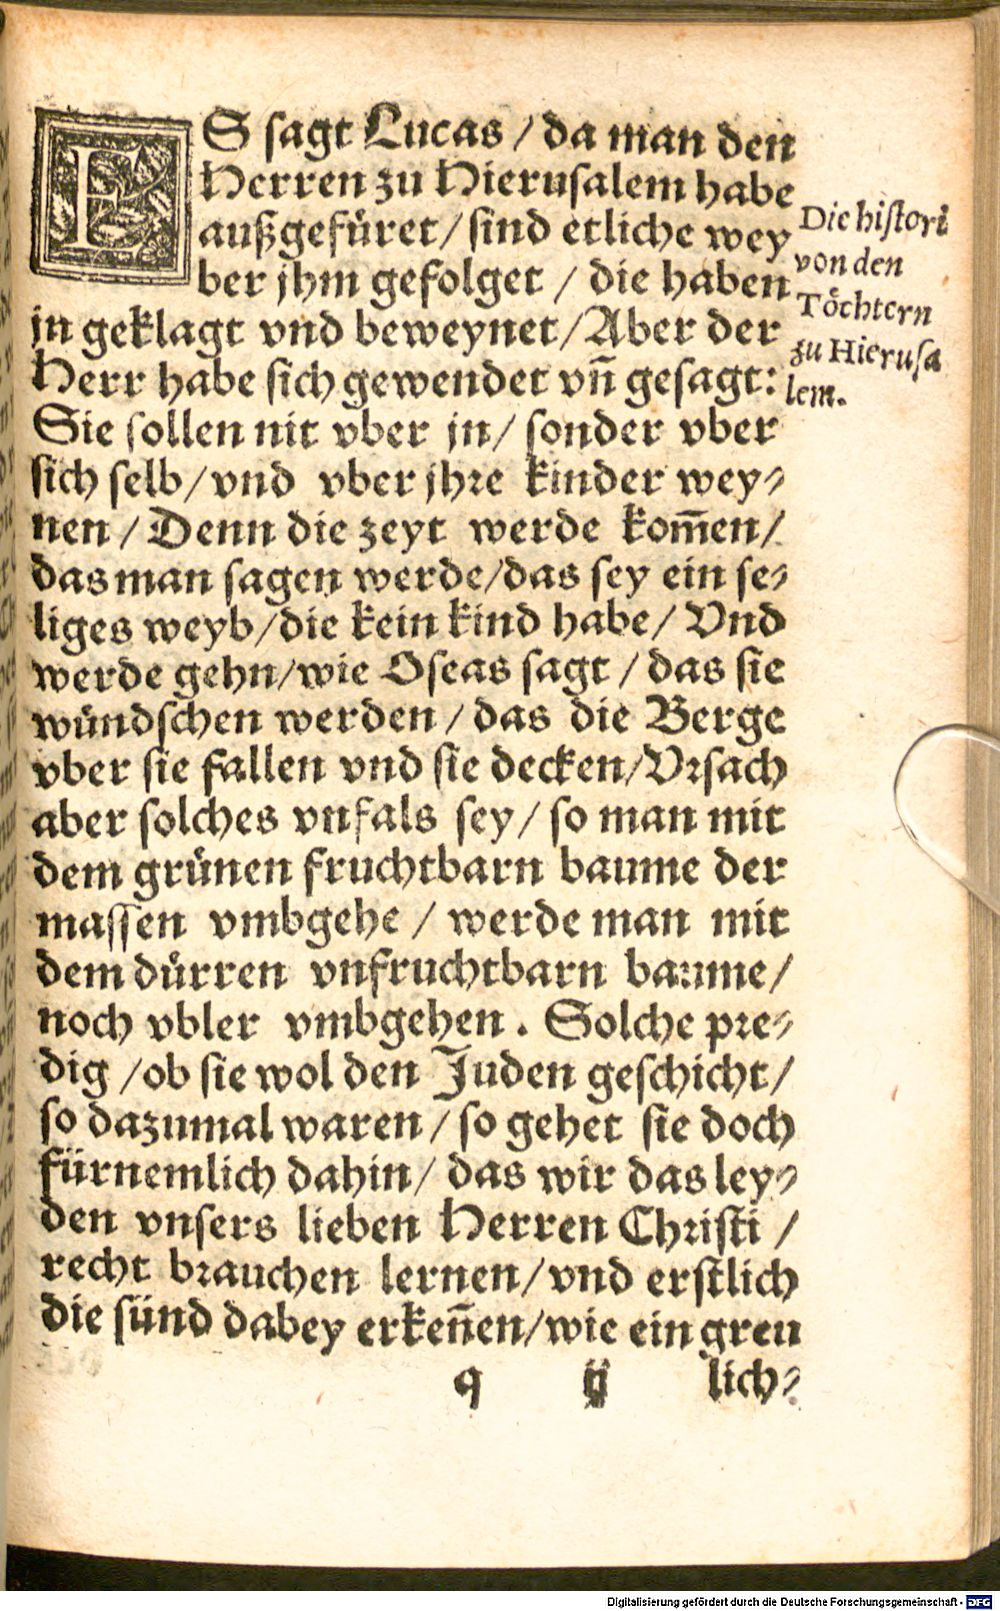 ES sagt Lucas / da man den
Herren zu Hierusalem habe
außgefüret / sind etliche wey
ber jhm gefolget / die haben
jn geklagt vnd beweynet / Aber der
Herr habe sich gewendet vñ gesagt:
Sie sollen nit vber jn / sonder vber
sich selb / vnd vber jhre kinder wey⸗
nen / Denn die zeyt werde kom̄en /
das man sagen werde / das sey ein se⸗
liges weyb / die kein kind habe / Vnd
werde gehn / wie Oseas sagt / das sie
wündschen werden / das die Berge
vber sie fallen vnd sie decken / Vrsach
aber solches vnfals sey / so man mit
dem grünen fruchtbarn baume der
massen vmbgehe / werde man mit
dem dürren vnfruchtbarn baume /
noch vbler vmbgehen. Solche pre⸗
dig / ob sie wol den Juden geschicht /
so dazumal waren / so gehet sie doch
fürnemlich dahin / das wir das ley⸗
den vnsers lieben Herren Christi /
recht brauchen lernen / vnd erstlich
die sünd dabey erkeñen / wie ein greu
q ij lich⸗
Die histori
von den
Töchtern
zu Hierusa
lem.
Digitalisierung gefördert durch die Deutsche Forschungsgemeinschaft - DFG